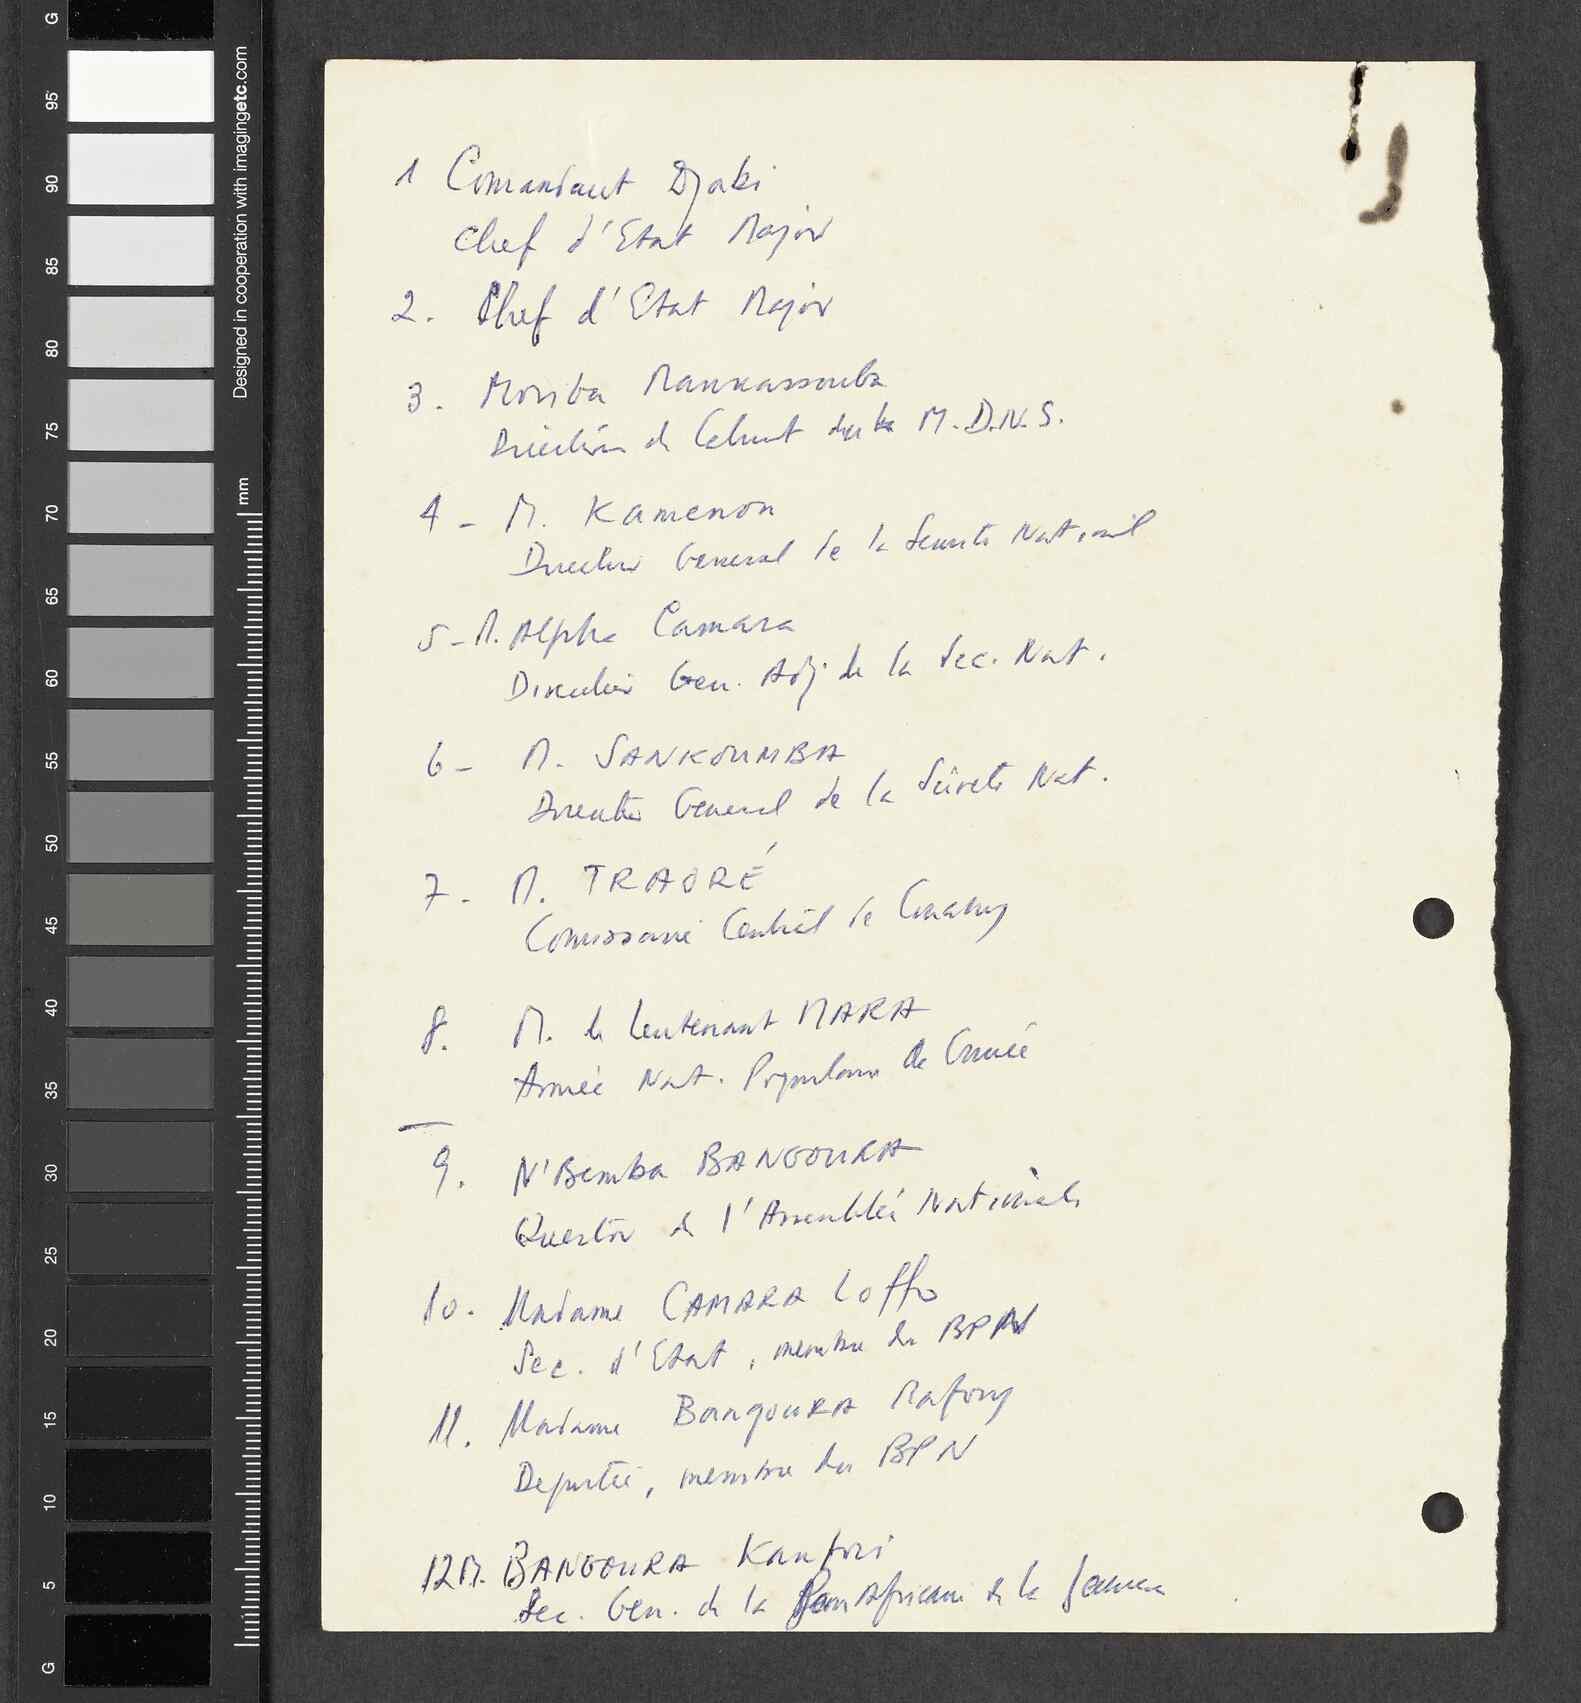 1 Comandant Djaki
Chef d'Etat Major
2. Chef d'Etat Major
3. Moriba Mankassouba
de M.D.N.S.
4- M. Kamenon
Director General de la National
5-M. Alpha Camara
Director Gen. Adj. de la Sec. Nat.
6- M. SANKOUMBA
Director General de la Sûreté Nat.
7- M. TRAORÉ
Comissaire Central de Conakry
8. M. le Leutenant MARA
Armée Nat. Populaire de Guinée
9. N'Bemba BANGOURA
Questor de l'Assemblée Nationale
10. Madame CAMARA Loffo
Sec. d'Etat, membre du BPN
11. Madame BangouRA Mafory
Deputée, membre du BPN
12M. BANGOURA Kanfori
Sec. Gen. de la PanAfricain de la
Designed in cooperation with imagingetc.com
mm
G
95
90
85
80
75
70
65
60
55
50
45
40
35
30
25
20
15
10
5
G